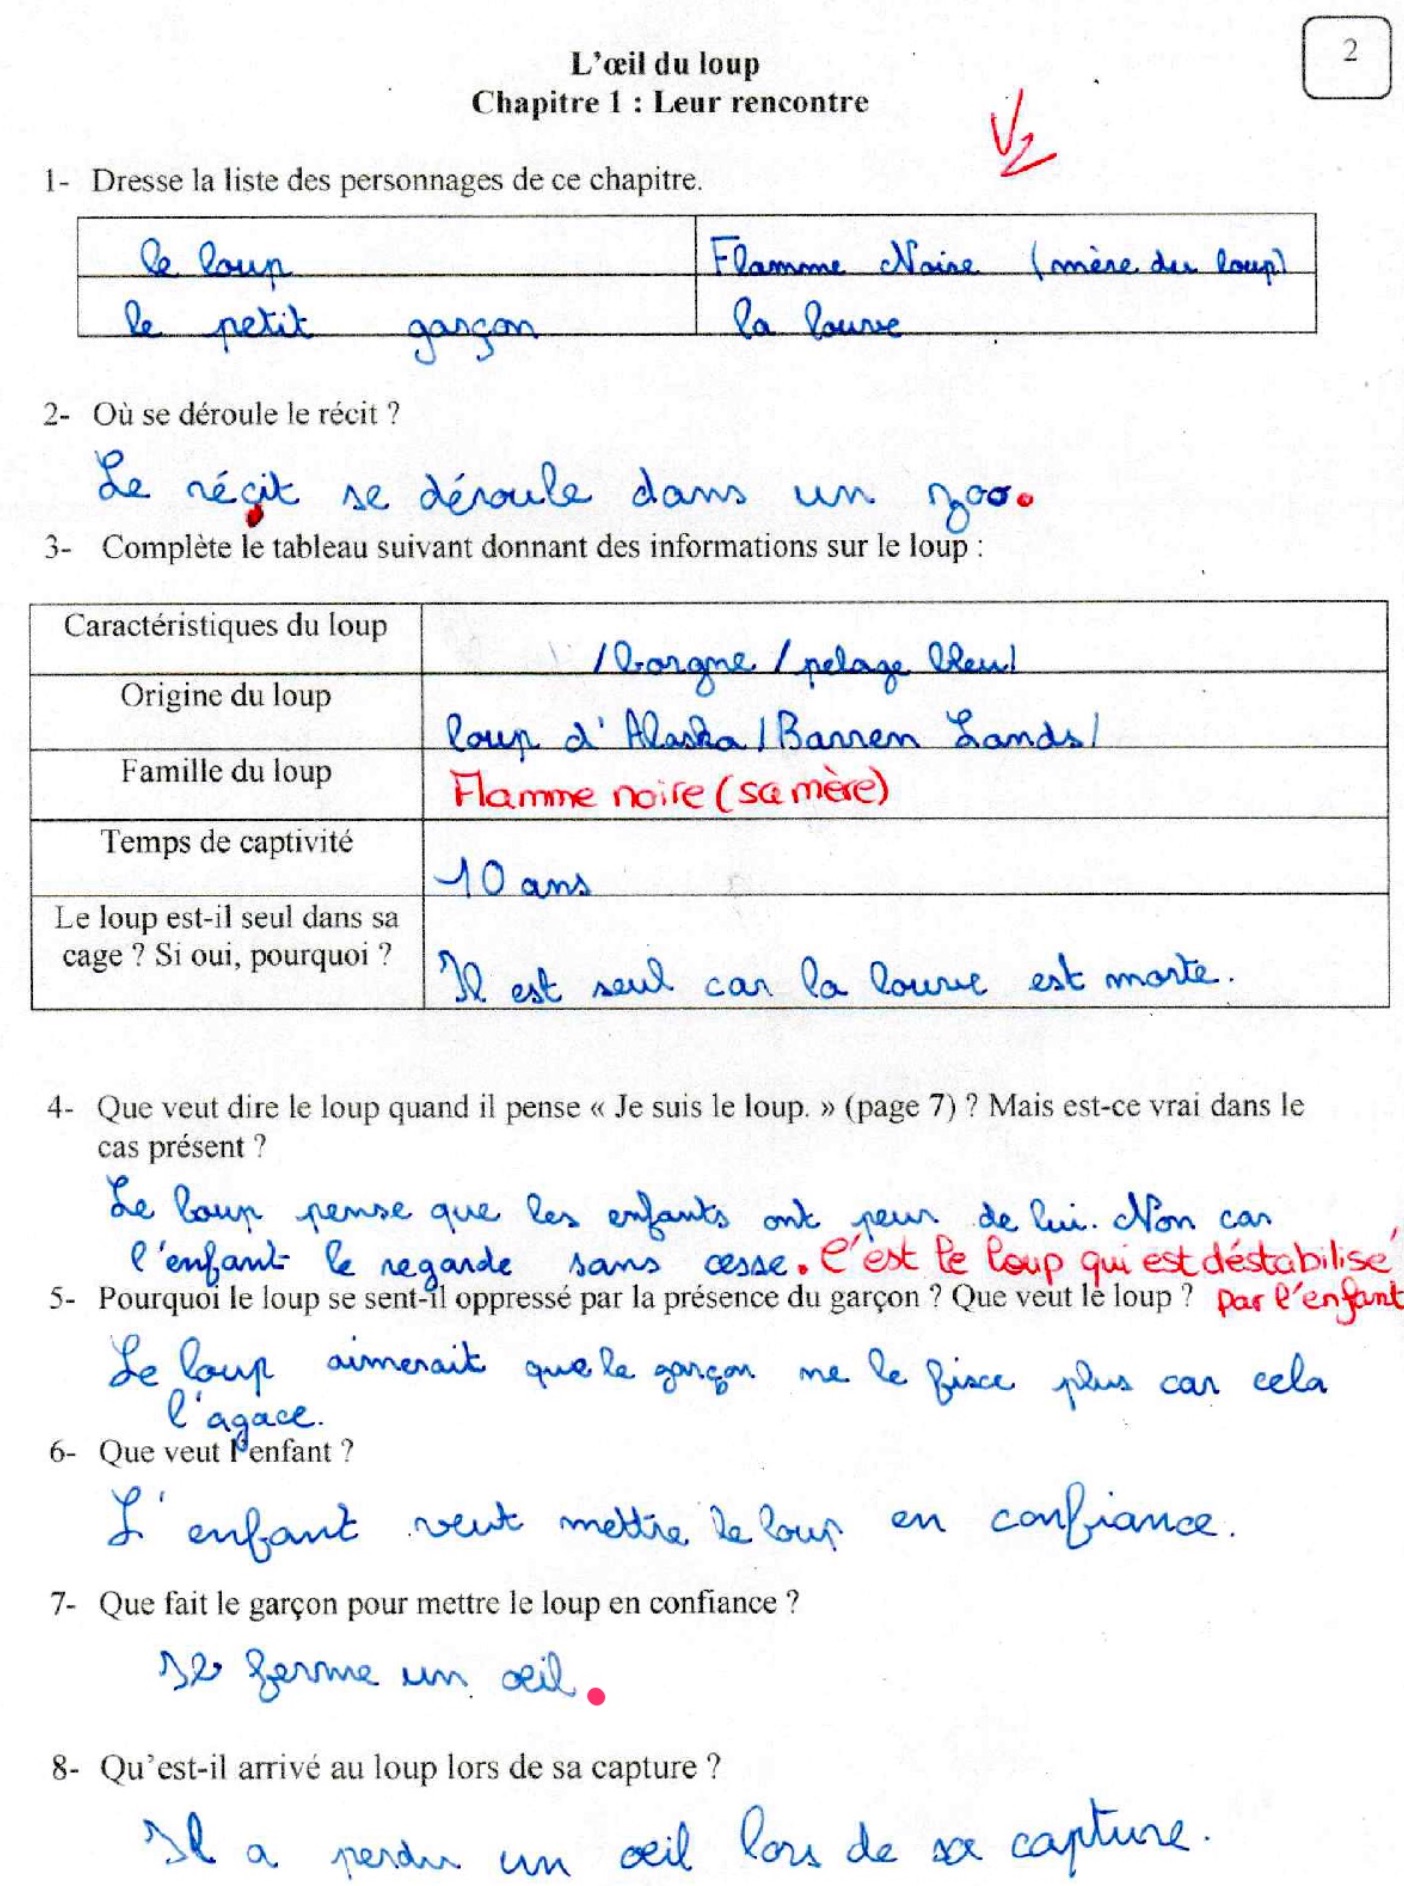 2
L'œil du loup
Chapitre 1 : Leur rencontre
1- Dresse la liste des personnages de ce chapitre.
le loup Flamme Noire (mère du loup)
le petit garçon la louve
2- Où se déroule le récit ?
Le réçit se déroule dans un zoo.
3- Complète le tableau suivant donnant des informations sur le loup :
Caractéristiques du loup /borgne / pelage bleu/
Origine du loup loup d'Alaska / Barren Lands /
Famille du loup Flamme noire (sa mère)
Temps de captivité 10 ans
Le loup est-il seul dans sa
cage ? Si oui, pourquoi ? Il est seul car la louve est morte.
4- Que veut dire le loup quand il pense « Je suis le loup. » (page 7) ? Mais est-ce vrai dans le
cas présent ?
Le loup pense que les enfants ont peur de lui. Non car
l'enfant le regarde sans cesse. C'est le loup qui est déstabilisé
5- Pourquoi le loup se sent-il oppressé par la présence du garçon ? Que veut le loup ? par l'enfant
Le loup aimerait que le garçon ne le fixe plus car cela
l'agace.
6- Que veut l'enfant ?
L'enfant veut mettre le loup en confiance.
7- Que fait le garçon pour mettre le loup en confiance ?
Il ferme un œil.
8- Qu'est-il arrivé au loup lors de sa capture ?
Il a perdu un œil lors de sa capture.